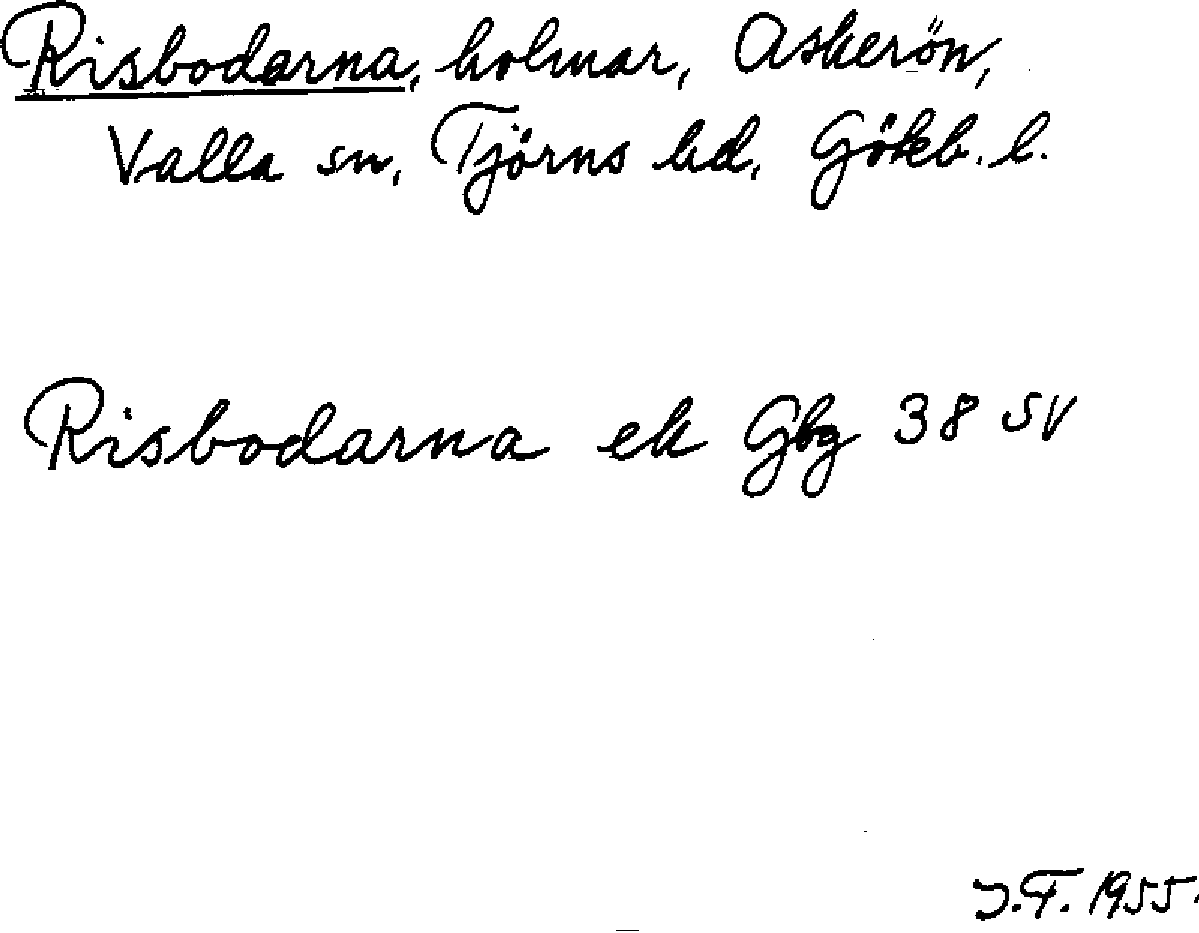 Risbodarna, holmar, Askerön,
Valla sn, Tjörns hd, Gökb. l.
Risbodarna ek Gbg 38 SV
J.F. 1955.